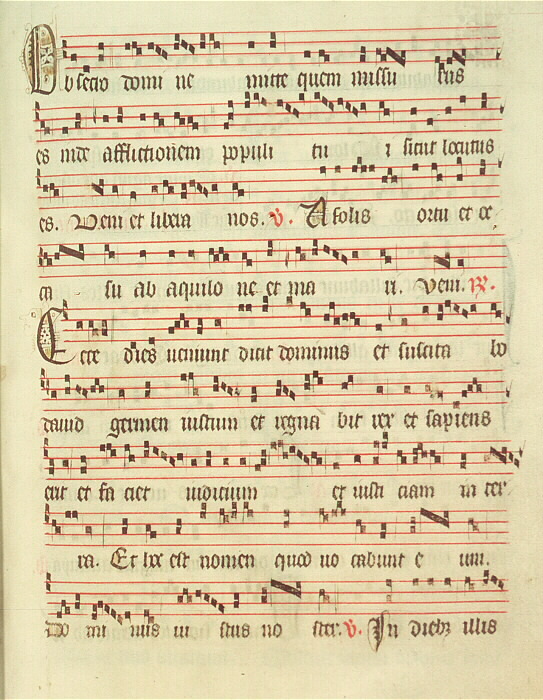 Obsecro domi ne mitte quem missu rus
es vide afflictionem populi tu i sicut locutus
es. Veni et libera nos. V. A solis ortu et oc
ca su ab aquilo ne et ma ri. Veni. R.
Ecce dies veniunt dicit dominus et suscita bo
david germen iustum et regna bit rex et sapiens
erit et fa ciet iudicium et iusti ciam in ter
ra. Et hoc est nomen quod vo cabunt e um.
Do mi nus iu stus no ster. V. In diebus illis